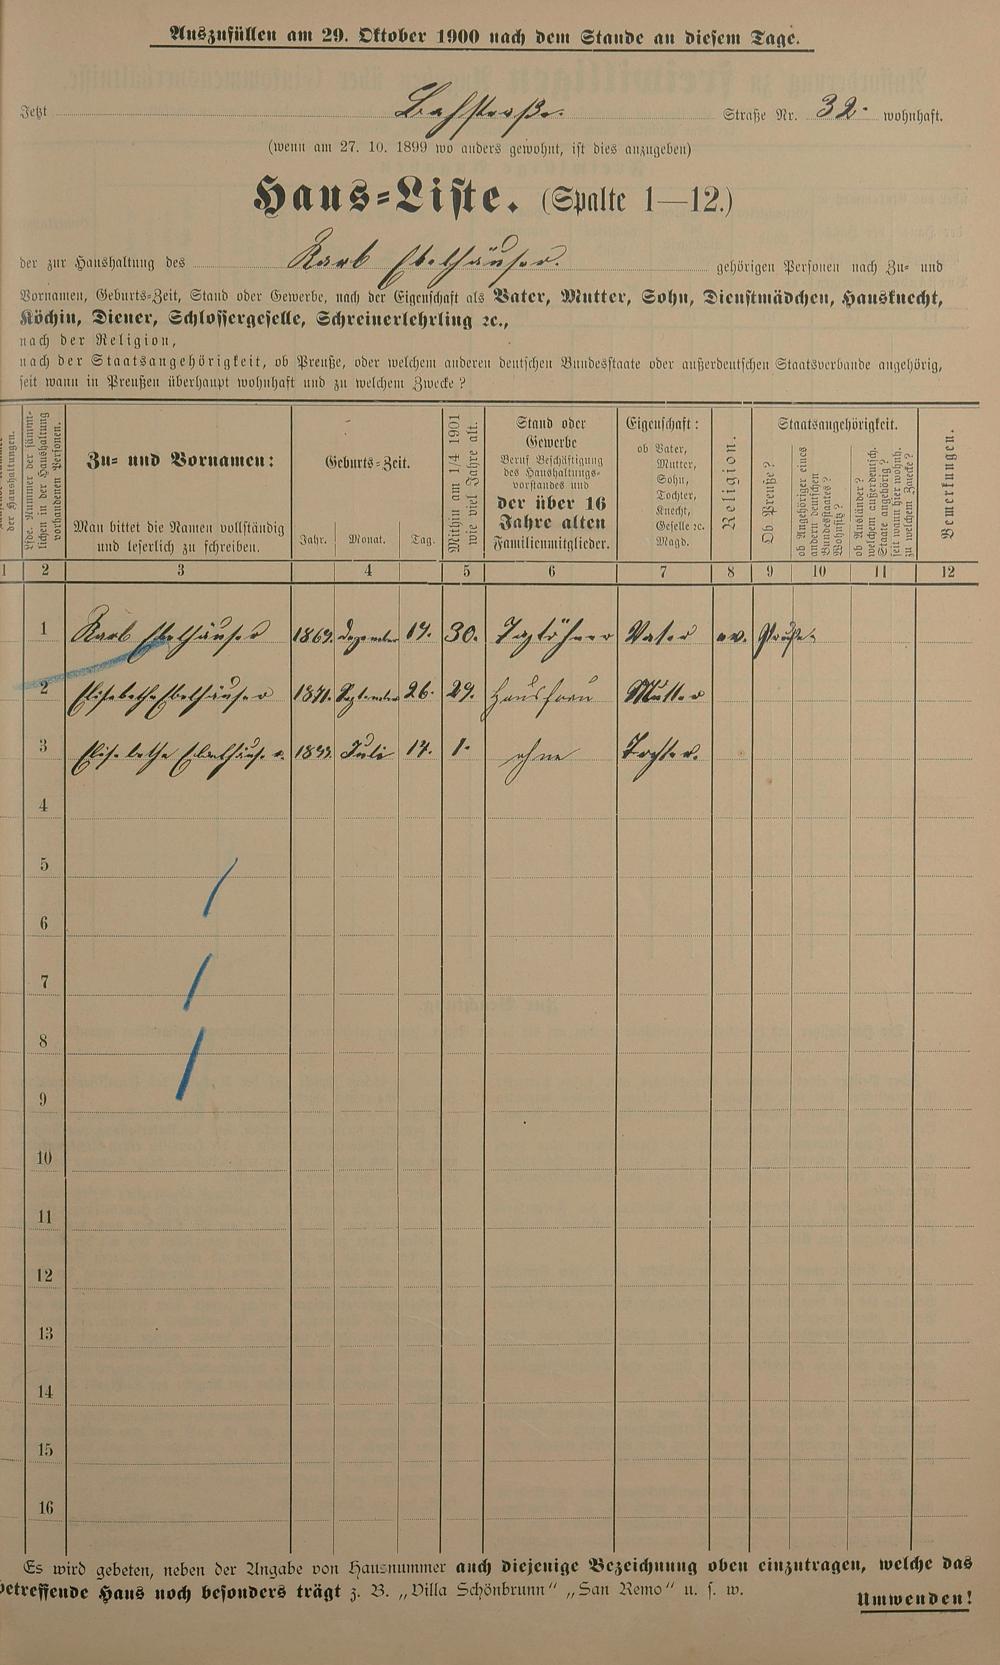 Auszufüllen am 29. Oktober 1900 nach dem Stande an diesem Tage.
Jetzt Bachstraße. Straße Nr. 32. wohnhaft.
(wenn am 27. 10. 1899 wo anders gewohnt, ist dies anzugeben)
Haus-Liste. (Spalte 1—12.)
der zur Haushaltung des Karl Ebelhäuser. gehörigen Personen nach Zu- und
Vornamen, Geburts-Zeit, Stand oder Gewerbe, nach der Eigenschaft als Vater, Mutter, Sohn, Dienstmädchen, Hausknecht,
Köchin, Diener, Schlossergeselle, Schreinerlehrling ꝛc.,
nach der Religion,
nach der Staatsangehörigkeit, ob Preuße, oder welchem anderen deutschen Bundesstaate oder außerdeutschen Staatsverbande angehörig,
seit wann in Preußen überhaupt wohnhaft und zu welchem Zwecke?
der Haushaltungen.
Lfde. Nummer der sämmt-
lichen in der Haushaltung
vorhandenen Personen.
Zu- und Vornamen:
Man bittet die Namen vollständig
und leserlich zu schreiben.
Geburts-Zeit.
Jahr. Monat. Tag.
Mithin am 1/4 1901
wie viel Jahre alt.
Stand oder
Gewerbe
Beruf Beschäftigung
des Haushaltungs-
vorstandes und
der über 16
Jahre alten
Familienmitglieder.
Eigenschaft:
ob Vater,
Mutter,
Sohn,
Tochter,
Knecht,
Geselle ꝛc.
Magd.
Religion.
Staatsangehörigkeit.
Ob Preuße?
ob Angehöriger eines
andern deutschen
Bundesstaates?
Wohnsitz?
ob Ausländer?
welchem außerdeutsch.
Staate angehörig?
seit wann hier wohnh.
zu welchem Zwecke?
Bemerkungen.
1 2 3 4 5 6 7 8 9 10 11 12
1 Karl Ebelhäuser 1869. Dezember 14. 30. Taglöhner Vater ev. Preuße.
2 Elisabethe Ebelhäuser 1871. September 26. 29. Hausfrau Mutter
3 Elisabethe Ebelhäuser. 1899. Juli 14. 1. ohne Tochter.
4
5
6
7
8
9
10
11
12
13
14
15
16
Es wird gebeten, neben der Angabe von Hausnummer auch diejenige Bezeichnung oben einzutragen, welche das
betreffende Haus noch besonders trägt z. B. „Villa Schönbrunn“ „San Remo“ u. s. w.
Umwenden!